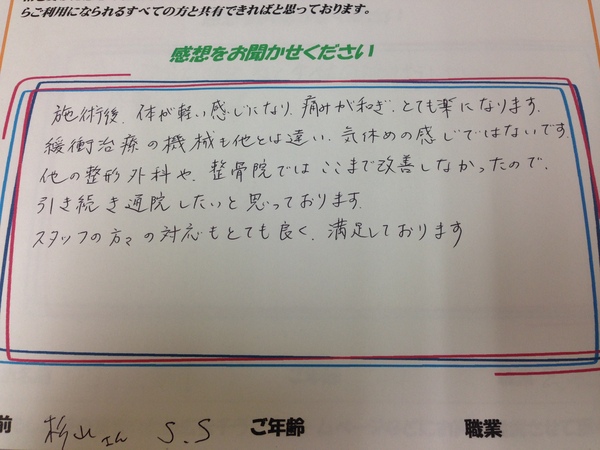 らご利用になられるすべての方と共有できればと思っております。
感想をお聞かせください
施術後、体が軽い感じになり、痛みが和ぎ、とても楽になります。
緩衝治療の機械も他とは違い、気休めの感じではないです
他の整形外科や、整骨院ではここまで改善しなかったので、
引き続き通院したいと思っております。
スタッフの方々の対応もとても良く、満足しております
前 杉山さん S.S ご年齢 職業